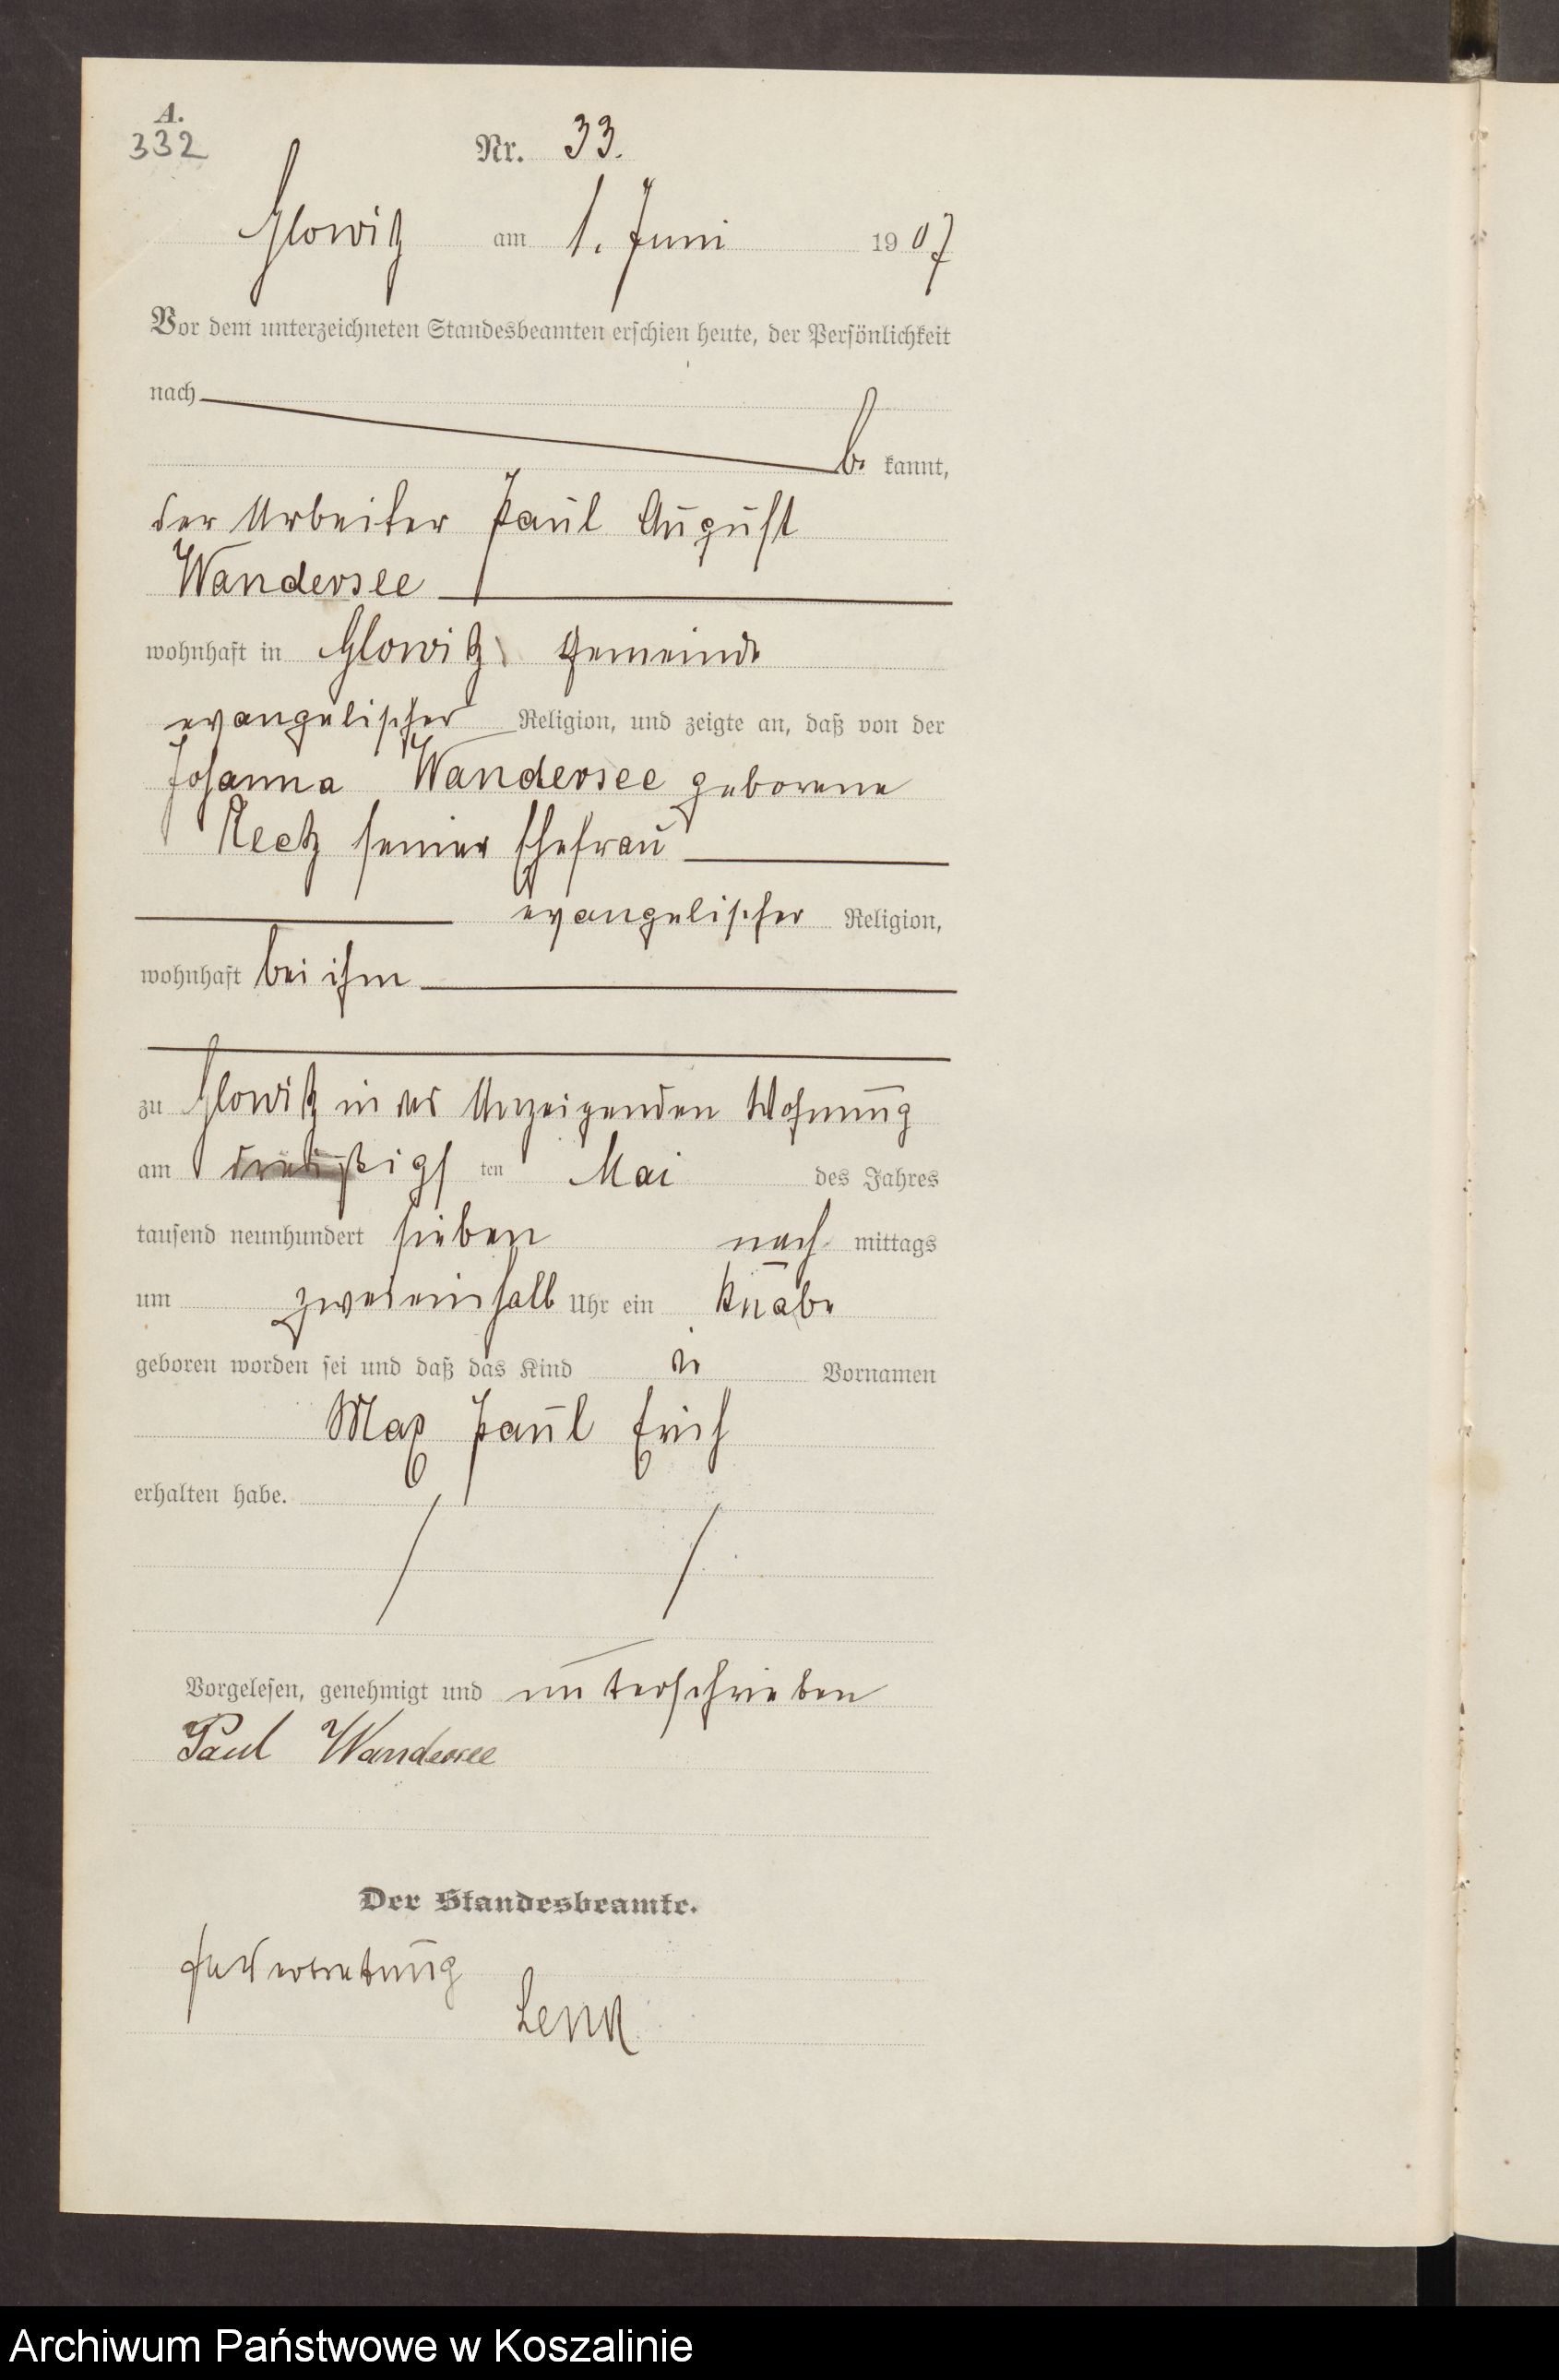 A.
332
Nr. 33.
Glowitz am 1. Juni 1907
Vor dem unterzeichneten Standesbeamten erschien heute, der Persönlichkeit
nach
be kannt,
der Arbeiter Paul August
Wandersee
wohnhaft in Glowitz Gemeinde
evangelischer Religion, und zeigte an, daß von der
Johanna Wandersee geborene
seiner Ehefrau
evangelischer Religion,
wohnhaft bei ihm
zu Glowitz in des Anzeigenden Wohnung
am dreißigsten Mai des Jahres
tausend neunhundert sieben nach mittags
um zweieinhalb Uhr ein Knabe
geboren worden sei und daß das Kind die Vornamen
Max Paul Erich
erhalten habe.
Vorgelesen, genehmigt und unterschrieben
Paul Wandersee
Der Standesbeamte.
In Vertretung
Lenk
Archiwum Państwowe w Koszalinie